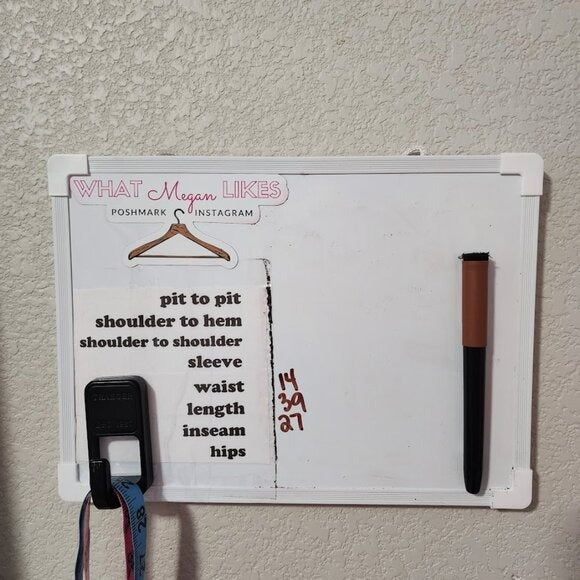 WHAT Megan LIKES
POSHMARK INSTAGRAM
pit to pit
shoulder to hem
shoulder to shoulder
sleeve
waist 14
length 39
inseam 27
hips
TRAEGER
28